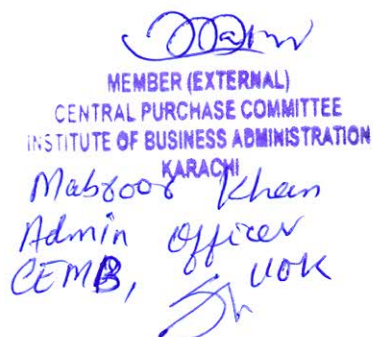 MEMBER (EXTERNAL)
CENTRAL PURCHASE COMMITTEE
INSTITUTE OF BUSINESS ADMINISTRATION
KARACHI
Mabroor Khan
Admin Officer
CEMB, UOK